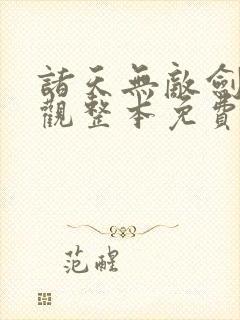 諸天無敵劍
觀整本免費
范醒